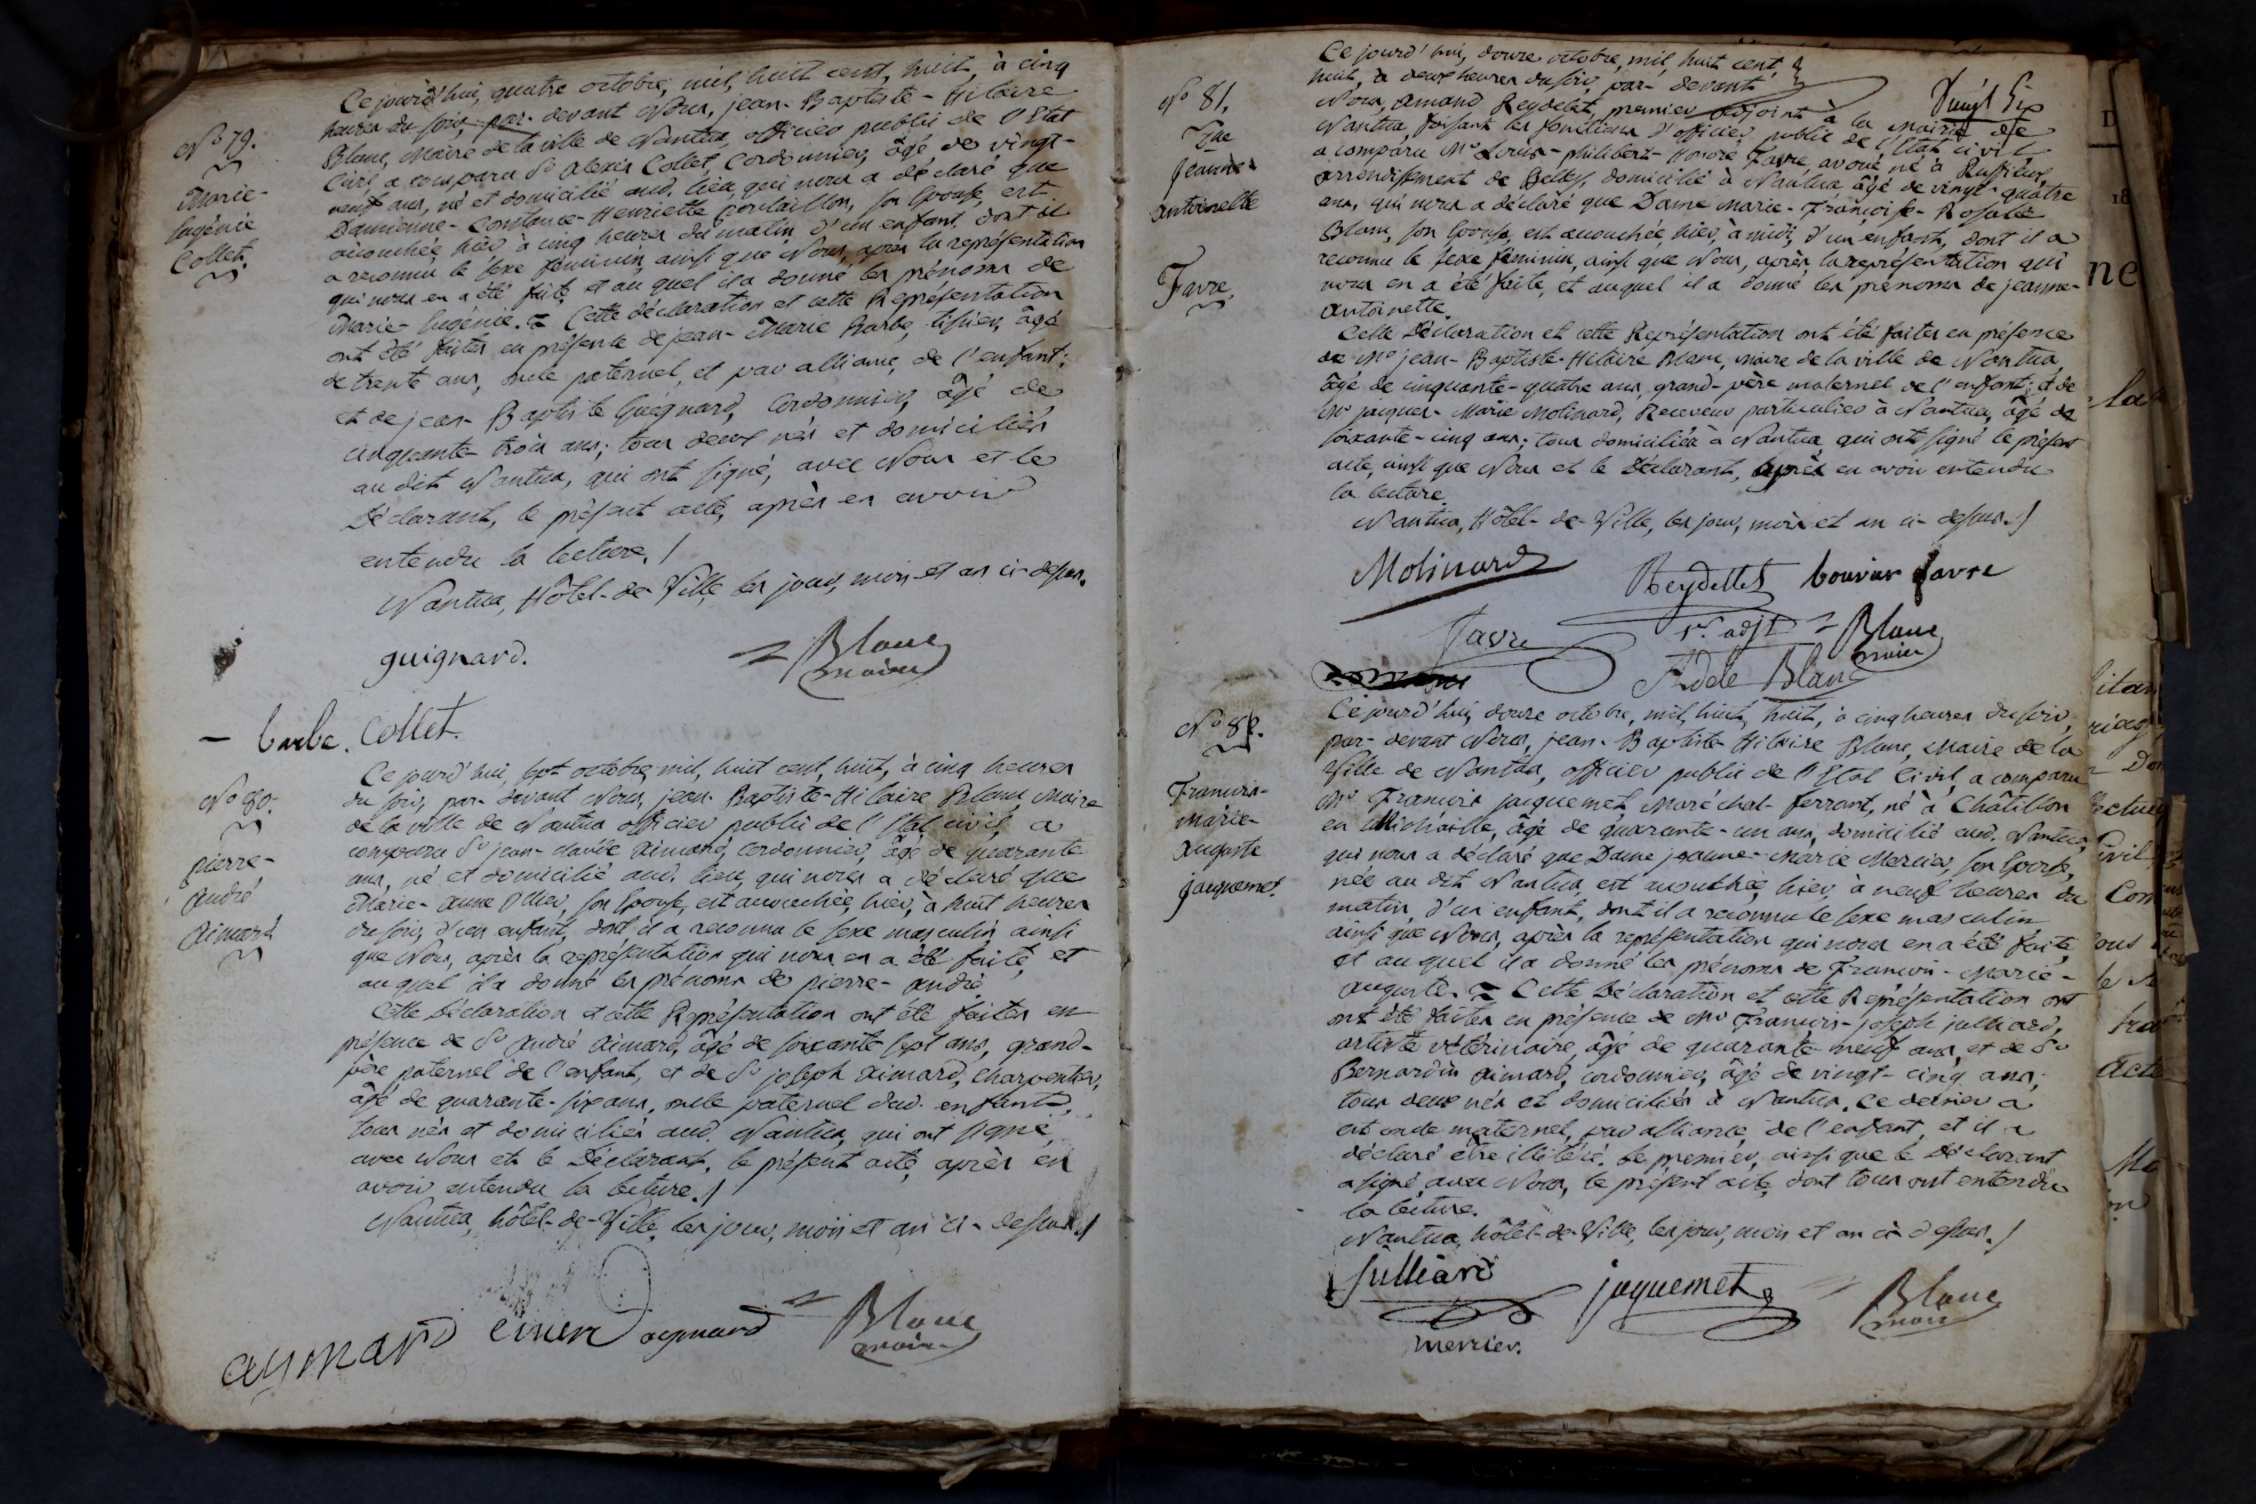 Ce jourd'hui, quatre octobre, mil, huit cent, huit, à cinq
heures du soir, par-devant Nous, jean-Baptiste-Hilaire
Blanc, Maire de la ville de Nantua, officier public de l'Etat
Civil, a comparu Sr Alexis Collet, Cordonnier, âgé de vingt-
neuf ans, né et domicilié aud. lieu, qui nous a déclaré que
Damienne-Constance-Henriette son Epouse, est
accouchée, hier, à cinq heures du matin, d'un enfant, dont il
a reconnu le sexe féminin, ainsi que Nous, après la représentation
qui nous en a été faite, et au quel il a donné les prénoms de
Marie-Eugénie. Cette déclaration et cette Représentation
ont été faites en présence de jean-Marie Barbe, âgé
de trente ans, oncle paternel, et par alliance, de l'enfant;
et de jean-Baptiste Guignard, Cordonnier, âgé de
cinquante-trois ans; tous deux nés et domiciliés
au dit Nantua, qui ont signé, avec Nous et le
Déclarant, le présent acte, après en avoir
entendu la lecture./
Nantua, Hôtel-de-Ville, les jour, mois et an ci-dessus.
No 79.
Marie-
Eugénie
Collet.
guignard.
Blanc
maire
barbe. Collet.
No 80.
pierre-
André
Aimard
Ce jourd'hui, sept octobre, mil, huit cent, huit, à cinq heures
du soir, par-devant Nous, jean-Baptiste-Hilaire Blanc, Maire
de la ville de Nantua officier public de l'Etat civil, a
comparu Sr jean-claude Aimard, cordonnier, âgé de quarante
ans, né et domicilié aud. lieu, qui nous a déclaré que
Marie-Anne son Epouse, est accouchée, hier, à huit heures
du soir, d'un enfant, dont il a reconnu le sexe masculin, ainsi
que Nous, après la représentation qui nous en a été faite, et
au quel il a donné les prénoms de pierre-André
Cette Déclaration et cette Représentation ont été faites en
présence de Sr André Aimard, âgé de soixante-sept ans, grand-
père paternel de l'enfant, et de Sr joseph Aimard, charpentier,
âgé de quarante-six ans, oncle paternel dud. enfant,
tous nés et domiciliés aud. Nantua, qui ont signé
avec Nous et le Déclarant, le présent acte, après en
avoir entendu la lecture./
Nantua, hôtel-de-Ville, les jour, mois et an ci-dessus./
aymard aymard Blanc
maire
Vingt Six
No 81.
Jeanne-
Antoinette
Favre.
Ce jourd'hui, douze octobre, mil, huit cent,
huit, à deux heures du soir, par-devant
Nous, Amand Reydelet, premier adjoint à la Mairie de
Nantua, faisant les fonctions d'officier public de l'Etat civil
a comparu Mr Louis-philibert-Honoré Favre, avoué, né à Ruffieux,
arrondissement de Belley, domicilié à Nantua, âgé de vingt-quatre
ans, qui nous a déclaré que Dame Marie-Françoise-Rosalie
Blanc, son Epouse, est accouchée, hier, à midi, d'un enfant, dont il a
reconnu le sexe féminin, ainsi que Nous, après la représentation qui
nous en a été faite, et auquel il a donné les prénoms de jeanne-
Antoinette.
Cette Déclaration et cette Représentation ont été faites en présence
de Mr jean-Baptiste-Hilaire Blanc, maire de la ville de Nantua,
âgé de cinquante-quatre ans, grand-père maternel de l'enfant; et de
Mr jacques-Marie Molinard, Receveur particulier à Nantua, âgé de
soixante-cinq ans; tous domiciliés à Nantua, qui ont signé le présent
acte, ainsi que Nous et le Déclarant, après en avoir entendu
la lecture.
Nantua, Hôtel-de-Ville, les jour, mois et an ci-dessus./
Molinard
Reydellet bouvier favre
Favre 1er adjt Blanc
maire
Adele Blanc
No 82.
François-
Marie-
Auguste
jacquemet.
Ce jourd'hui, douze octobre, mil, huit, huit, à cinq heures du soir,
par-devant Nous, jean-Baptiste-Hilaire Blanc, Maire de la
Ville de Nantua, officier public de l'Etat Civil, a comparu
Mr François jacquemet, Maréchal-ferrant, né à Châtillon
en Michaille, âgé de quarante-un ans, domicilié aud. Nantua,
qui nous a déclaré que Dame jeanne-Marie Mercier, son Epouse,
née au dit Nantua, est accouchée, hier, à neuf heures du
matin, d'un enfant, dont il a reconnu le sexe masculin
ainsi que Nous, après la représentation qui nous en a été faite,
et au quel il a donné les prénoms de François-Marie-
Auguste. Cette Déclaration et cette Représentation ont
ont été faites en présence de Mr François-joseph julliard,
artiste vétérinaire, âgé de quarante-neuf ans, et de Sr
Bernardin Aimard, cordonnier, âgé de vingt-cinq ans;
tous deux nés et domiciliés à Nantua. Ce dernier a
est oncle maternel, par alliance, de l'enfant, et il a
déclaré être illitéré. Le premier, ainsi que le Déclarant
a signé avec Nous, le présent acte, dont tous ont entendu
la lecture.
Nantua, hôtel-de-Ville, les jour, mois et an ci-dessus./
Julliard
jaquemet
Blanc
maire
mercier.